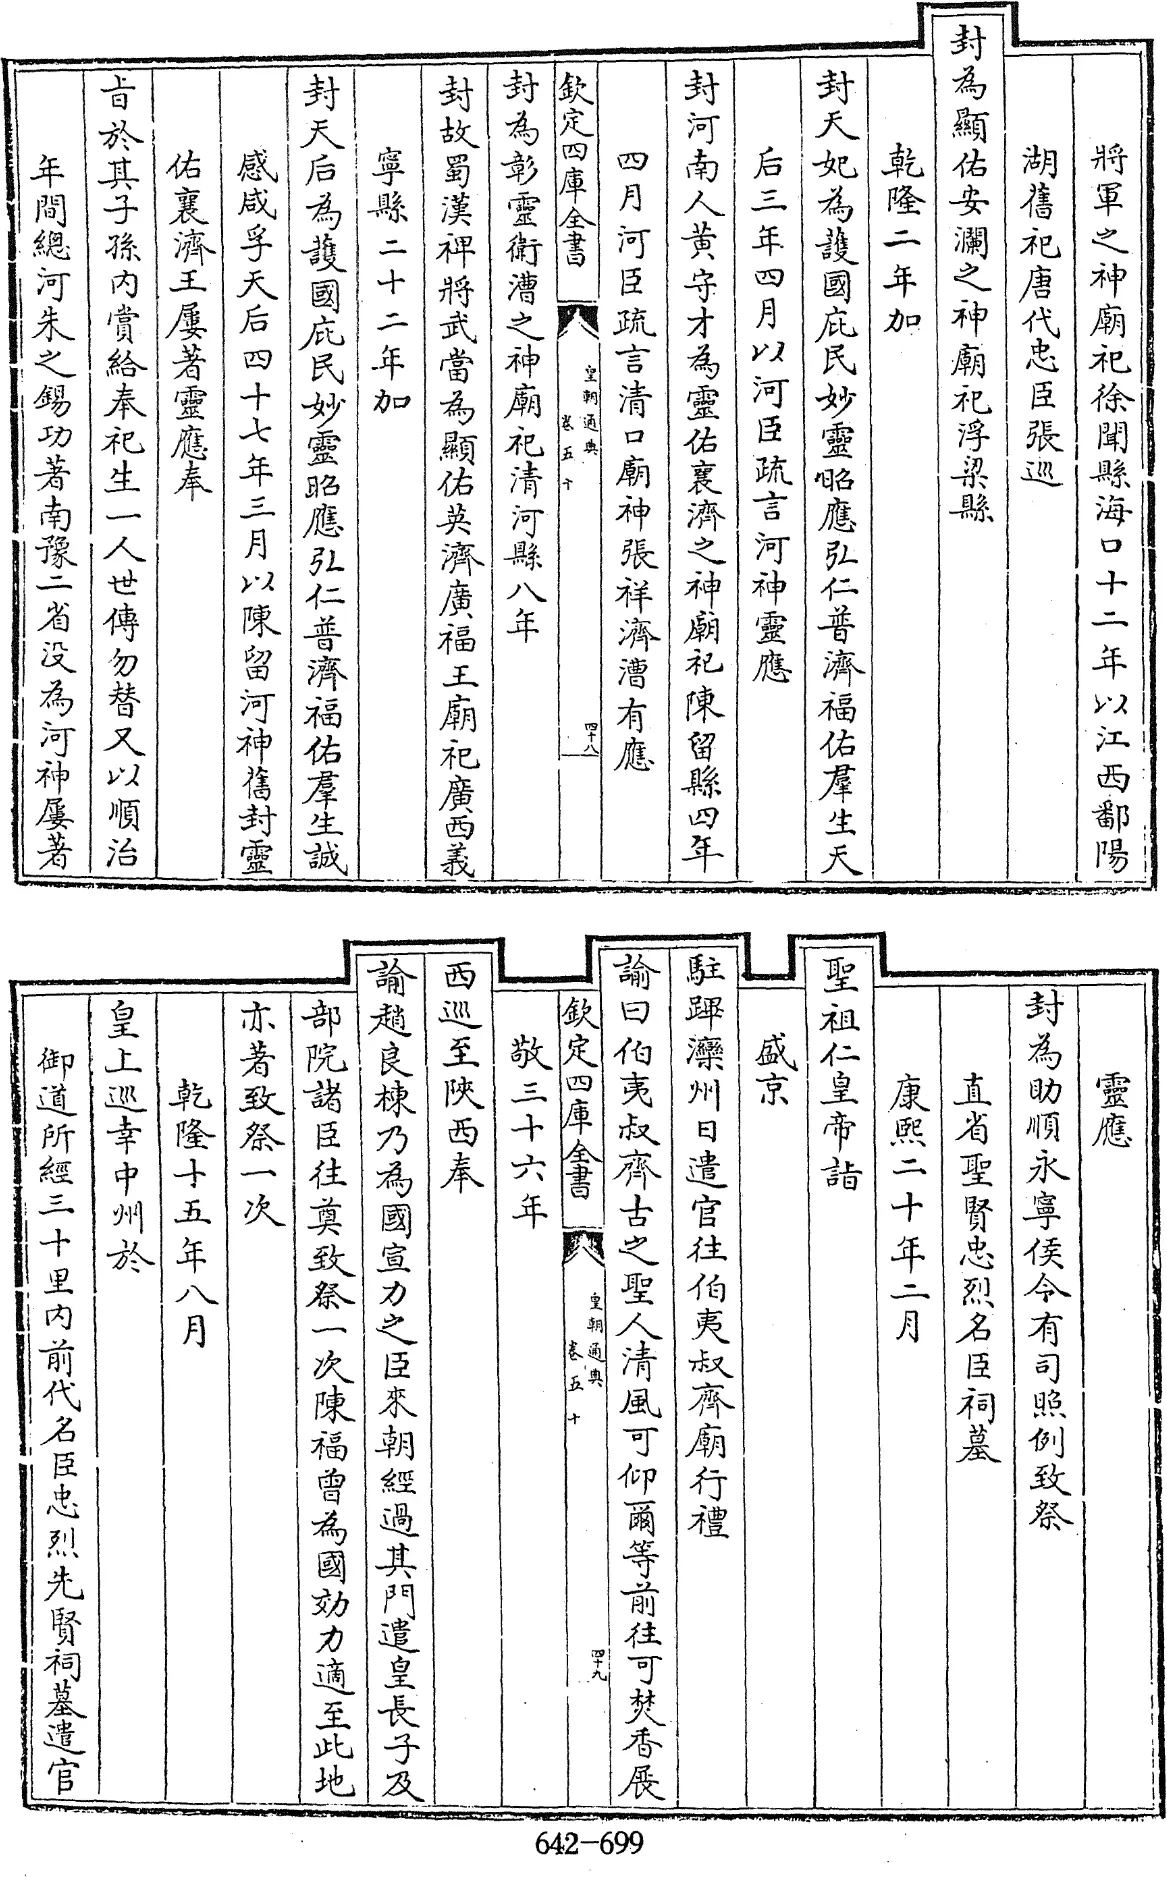 將軍之神廟祀徐聞縣海口十二年以江西鄱陽
湖舊祀唐代忠臣張巡
封為顯佑安瀾之神廟祀浮梁縣
乾隆二年加
封天妃為護國庇民妙靈昭應弘仁普濟福佑羣生天
后三年四月以河臣疏言河神靈應
封河南人黃守才為靈佑襄濟之神廟祀陳留縣四年
四月河臣疏言清口廟神張祥濟漕有應
欽定四庫全書
皇朝通典
卷五十
四十八
封為彰靈衛漕之神廟祀清河縣八年
封故蜀漢裨將武當為顯佑英濟廣福王廟祀廣西義
寧縣二十二年加
封天后為護國庇民妙靈昭應弘仁普濟福佑羣生誠
感咸孚天后四十七年三月以陳留河神舊封靈
佑襄濟王屢著靈應奉
旨於其子孫內賞給奉祀生一人世傳勿替又以順治
年間總河朱之錫功著南豫二省没為河神屢著
靈應
封為助順永寧侯令有司照例致祭
直省聖賢忠烈名臣祠墓
康熙二十年二月
聖祖仁皇帝詣
盛京
駐蹕灤州日遣官往伯夷叔齊廟行禮
諭曰伯夷叔齊古之聖人清風可仰爾等前往可焚香展
欽定四庫全書
皇朝通典
卷五十
四十九
敬三十六年
西巡至陝西奉
諭趙良棟乃為國宣力之臣來朝經過其門遣皇長子及
部院諸臣往奠致祭一次陳福曾為國効力適至此地
亦著致祭一次
乾隆十五年八月
皇上巡幸中州於
御道所經三十里內前代名臣忠烈先賢祠墓遣官
642-699